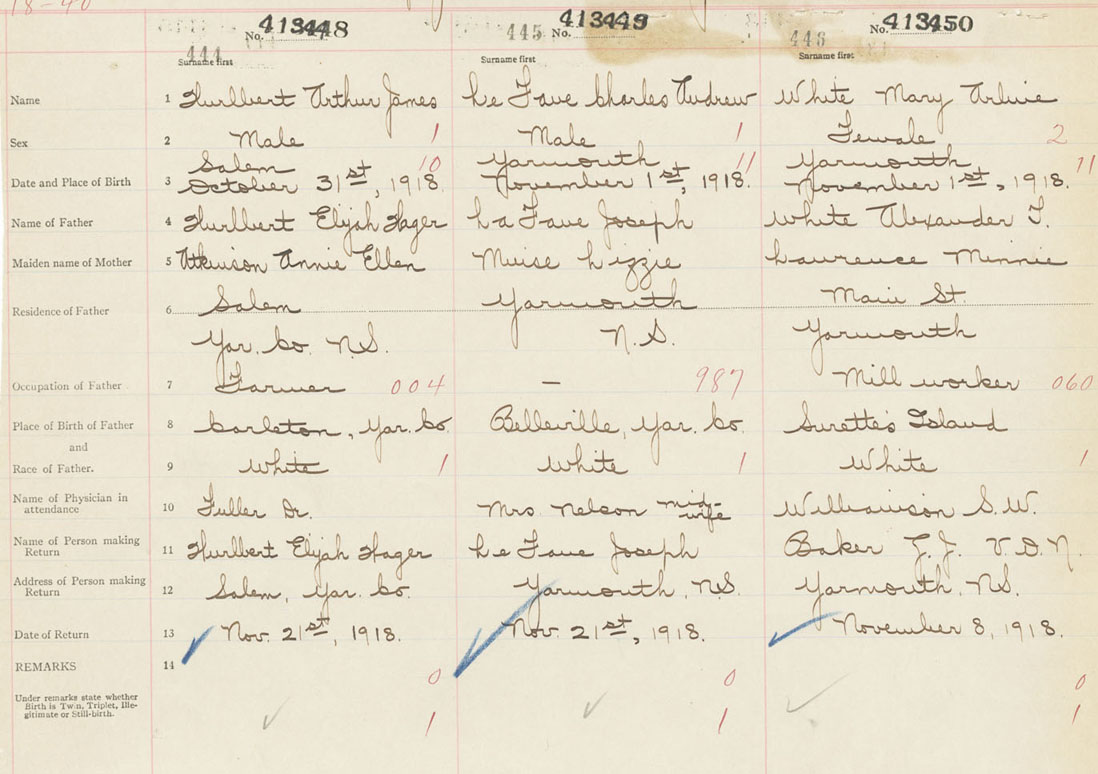 18-40
No. 413448 No. 413449 No. 413450
444 445 446
Surname first Surname first Surname first
Name 1 Hurlbert Arthur James Le Fave Charles Andrew White Mary Arline
Sex 2 Male 1 Male 1 Female 2
Salem 10 Yarmouth 11 Yarmouth 11
Date and Place of Birth 3 October 31st, 1918. November 1st, 1918. November 1st, 1918.
Name of Father 4 Hurlbert Elijah Hager La Fave Joseph White Alexander F.
Maiden name of Mother 5 Atkinson Annie Ellen Muise Lizzie Lawrence Minnie
Residence of Father 6 Salem Yarmouth Main St.
Yar. Co. N.S. N.S. Yarmouth
Occupation of Father 7 Farmer 004 — 987 Mill worker 060
Place of Birth of Father 8 Carleton, Yar. Co. Belleville, Yar. Co. Surette's Island
and
Race of Father. 9 White 1 White 1 White 1
Name of Physician in attendance 10 Fuller Dr. Mrs Nelson mid-wife Williamson S.W.
Name of Person making Return 11 Hurlbert Elijah Hager Le Fave Joseph Baker V.O.N.
Address of Person making Return 12 Salem, Yar. Co. Yarmouth, N.S. Yarmouth, N.S.
Date of Return 13 Nov. 21st, 1918. Nov. 21st, 1918. November 8, 1918.
REMARKS 14
0 0 0
Under remarks state whether
Birth is Twin, Triplet, Ille-
gitimate or Still-birth.
1 1 1